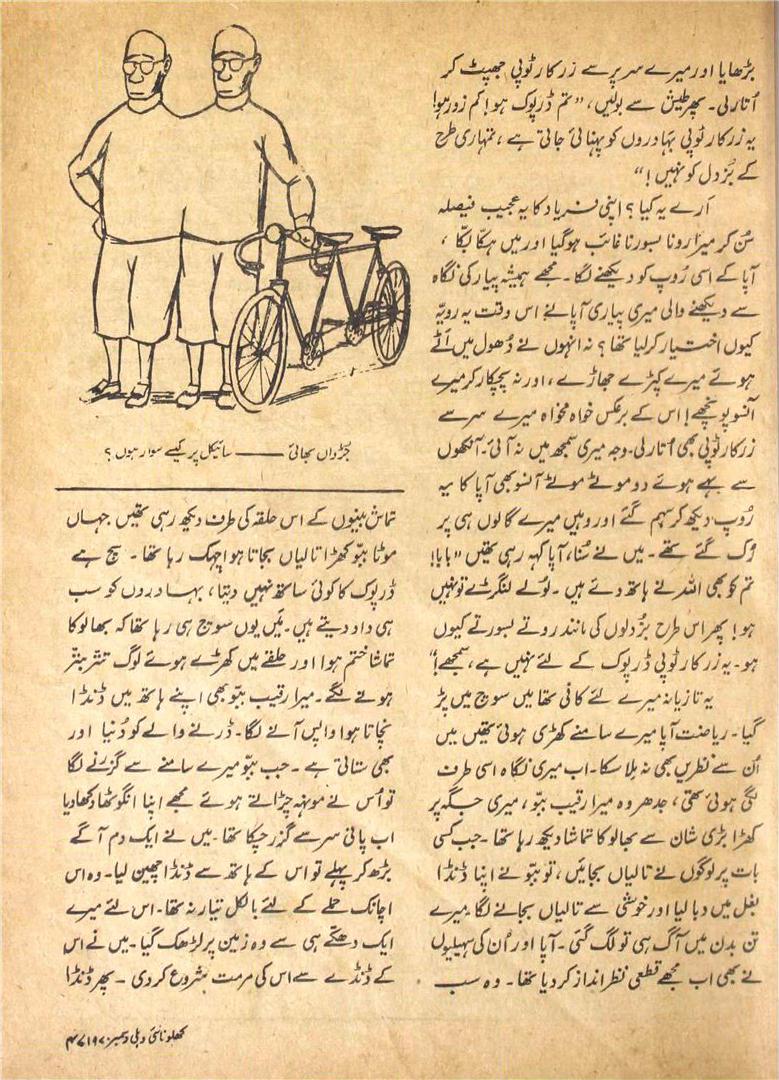 بڑھایا اور میرے سر پر سے زرکار ٹوپی جھپٹ کر
اُتار لی۔ پھر طیش سے بولیں، ”تم ڈرپوک ہو! کم زور ہو!
یہ زرکار ٹوپی بہادروں کو پہنائی جاتی ہے، تمہاری طرح
کے بُزدل کو نہیں!“
ارے یہ کیا؟ اپنی فریاد کا یہ عجیب فیصلہ
سُن کر میرا رونا بسورنا غائب ہوگیا اور میں ہکّا بکّا،
آپا کے اسی رُوپ کو دیکھنے لگا۔ مجھے ہمیشہ پیار کی نگاہ
سے دیکھنے والی میری پیاری آپا نے اس وقت یہ رویّہ
کیوں اختیار کر لیا تھا؟ نہ انہوں نے دُھول میں اَٹے
ہوئے میرے کپڑے جھاڑے، اور نہ پچکار کر میرے
آنسو پونچھے! اس کے برعکس خواہ مخواہ میرے سر سے
زرکار ٹوپی بھی اُتار لی۔ وجہ میری سمجھ میں نہ آئی۔ آنکھوں
سے بہے ہوئے دو موٹے موٹے آنسو بھی آپا کا یہ
رُوپ دیکھ کر سہم گئے اور وہیں میرے گالوں ہی پر
رُک گئے تھے۔ میں نے سُنا، آپا کہہ رہی تھیں ”بابا!
تم کو بھی اللہ نے ہاتھ دئے ہیں۔ لُولے لنگڑے تو نہیں
ہو! پھر اس طرح بزُدلوں کی مانند روتے بسورتے کیوں
ہو۔ یہ زرکار ٹوپی ڈرپوک کے لئے نہیں ہے، سمجھے!“
یہ تازیانہ میرے لئے کافی تھا میں سوچ میں پڑ
گیا۔ ریاضت آپا میرے سامنے کھڑی ہوئی تھیں میں
اُن سے نظریں بھی نہ ملا سکا۔ اب میری نگاہ اسی طرف
لگی ہوئی تھی، جدھر وہ میرا رقیب ببّو، میری جگہ پر
کھڑا بڑی شان سے بھالو کا تماشا دیکھ رہا تھا۔ جب کسی
بات پر لوگوں نے تالیاں بجائیں، تو ببّو نے اپنا ڈنڈا
بغل میں دبا لیا اور خوشی سے تالیاں بجانے لگا۔ میرے
تن بدن میں آگ ہی تو لگ گئی۔ آپا اور اُن کی سہیلیوں
نے بھی اب مجھے قطعی نظر انداز کر دیا تھا۔ وہ سب
جُڑواں بھائی —— سائیکل پر کیسے سوار ہوں؟
تماش بینوں کے اس حلقہ کی طرف دیکھ رہی تھیں جہاں
موٹا ببّو کھڑا تالیاں بجاتا ہوا چہک رہا تھا۔ سچ ہے
ڈرپوک کا کوئی ساتھ نہیں دیتا، بہادروں کو سب
ہی داد دیتے ہیں۔ میَں یوں سوچ ہی رہا تھا کہ بھالو کا
تماشا ختم ہوا اور حلقے میں کھڑے ہوئے لوگ تتر بتّر
ہونے لگے۔ میرا رقیب ببّو بھی اپنے ہاتھ میں ڈنڈا
نچاتا ہوا واپس آنے لگا۔ ڈرنے والے کو دُنیا اور
بھی ستاتی ہے۔ جب ببّو میرے سامنے سے گزرنے لگا
تو اُس نے مونہہ چڑاتے ہوئے مجھے اپنا انگوٹھا دکھا دیا
اب پانی سر سے گزر چکا تھا۔ میں نے ایک دم آگے
بڑھ کر پہلے تو اس کے ہاتھ سے ڈنڈا چھین لیا۔ وہ اس
اچانک حملے کے لئے بالکل تیار نہ تھا۔ اس لئے میرے
ایک دھکّے ہی سے وہ زمین پر لڑھک گیا۔ میں نے اس
کے ڈنڈے سے اس کی مرمت شروع کردی۔ پھر ڈنڈا
کھلونا نئی دہلی دسمبر ۱۹۷۰ء ۴۷